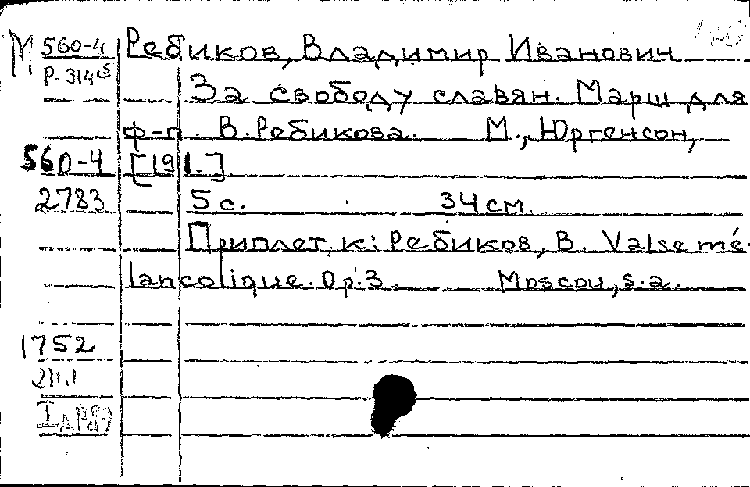 М 560-4 Ребиков, Владимир Иванович
Р-314
За свободу славян. Марш для
ф-п. В. Ребикова. М., Юргенсон,
560-4 [191.]
2783 5 с. 34 см.
Приплет. к: Ребиков, В. Valse mé-
lancolique. Op.3. Moscou, s.a.
1752